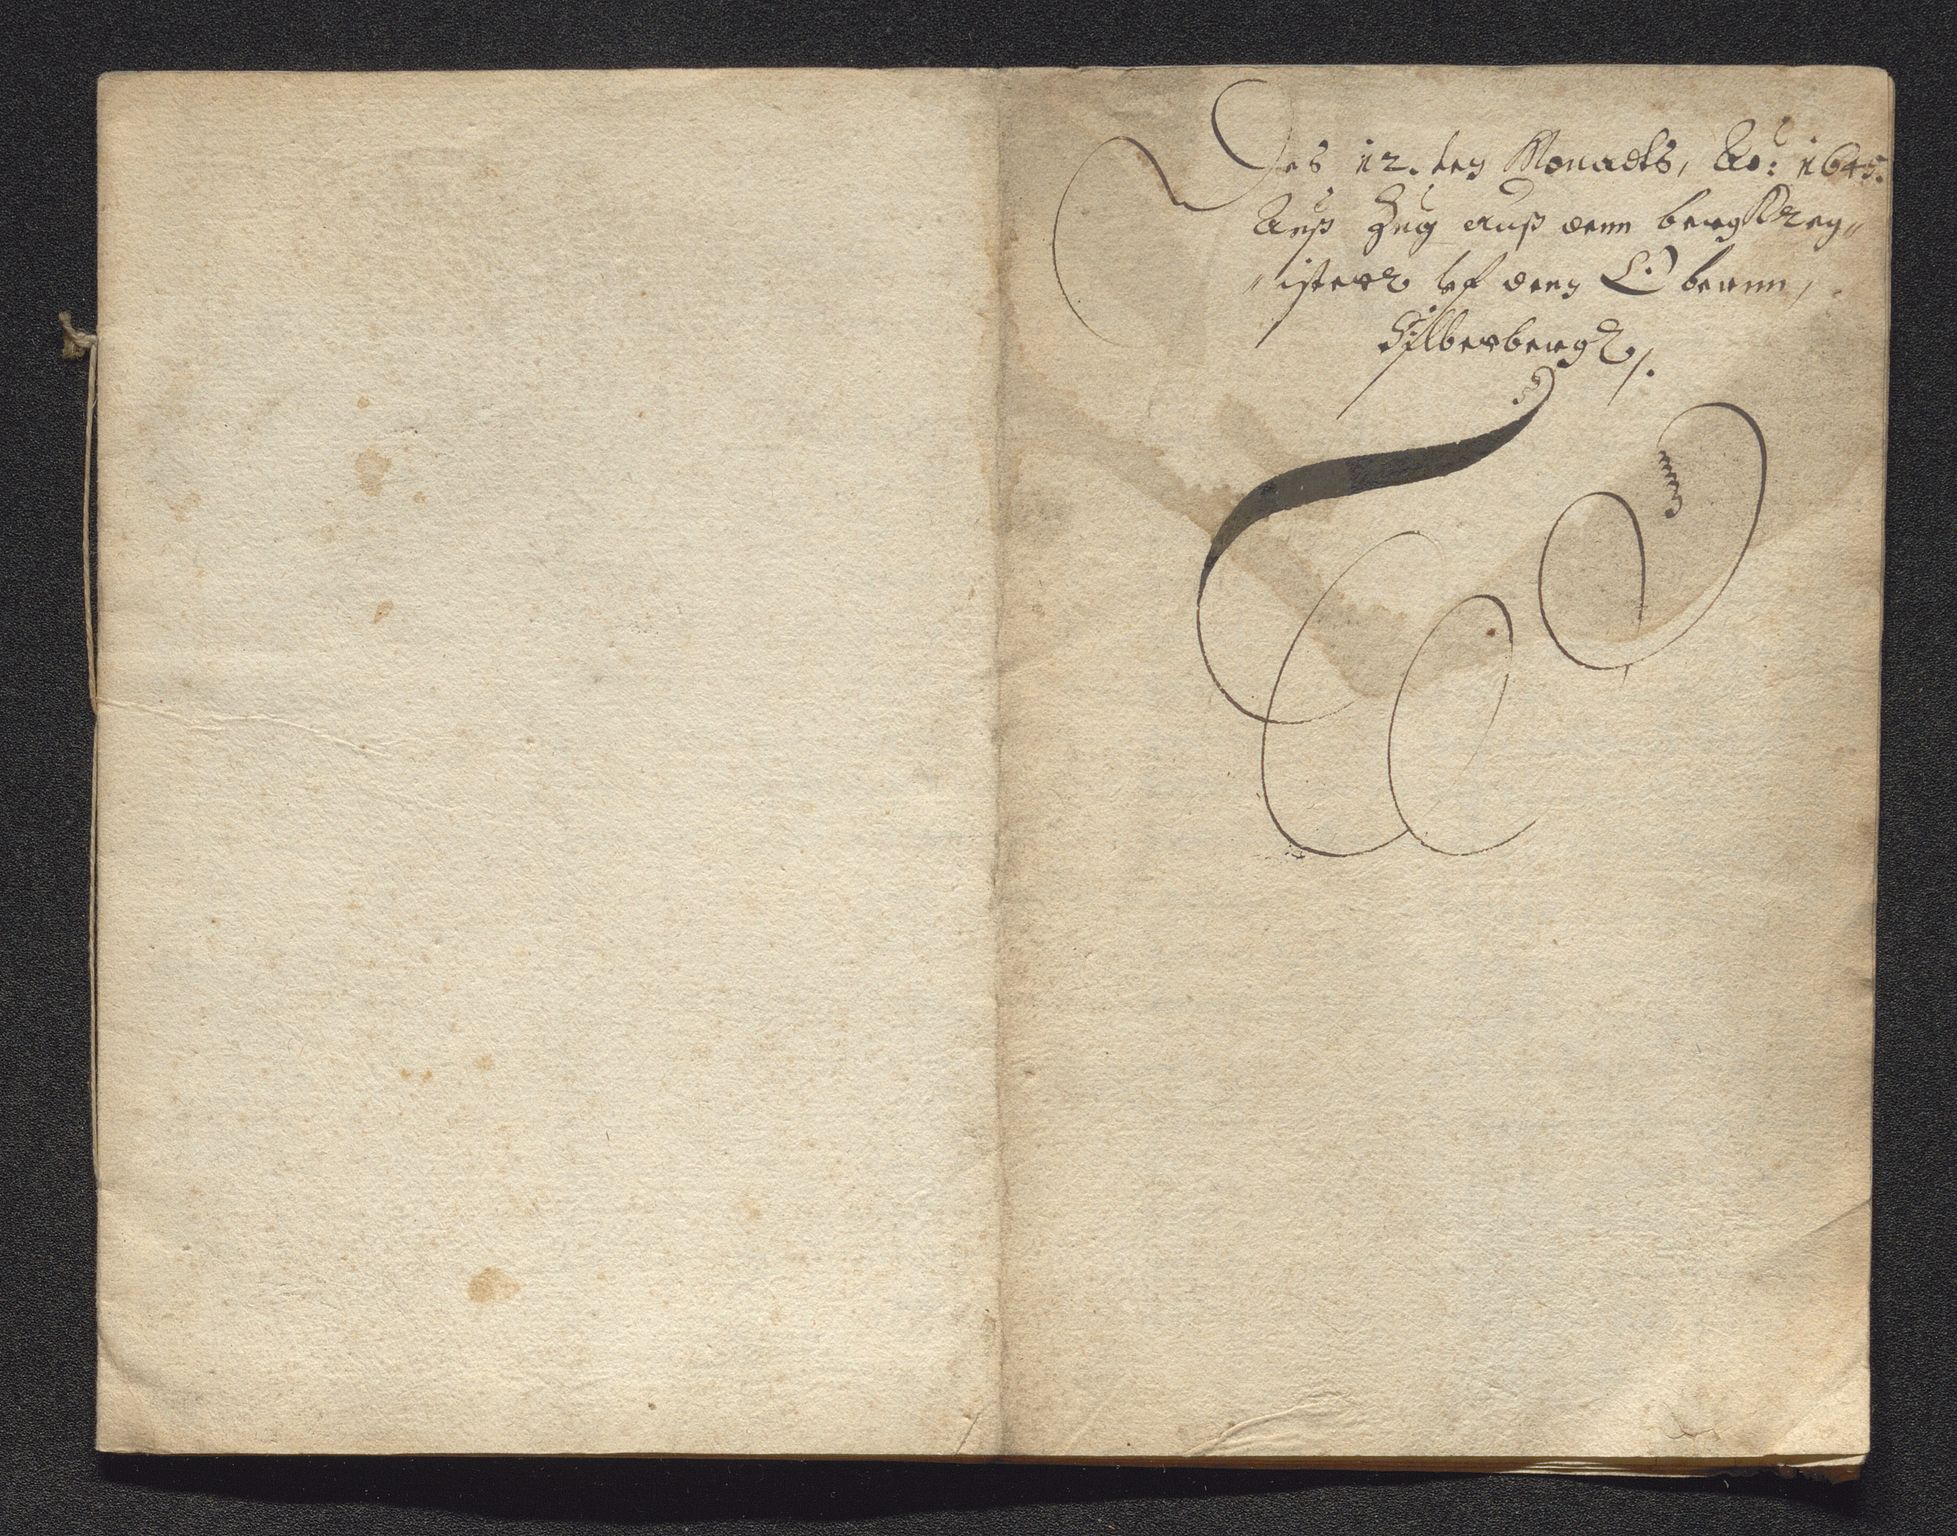 Des 12.ten Monadts, Ao: 1645.
Auß Zug auß dem bergk Reg〃
〃isterr uf dem Obernn,
Silberbergk/.